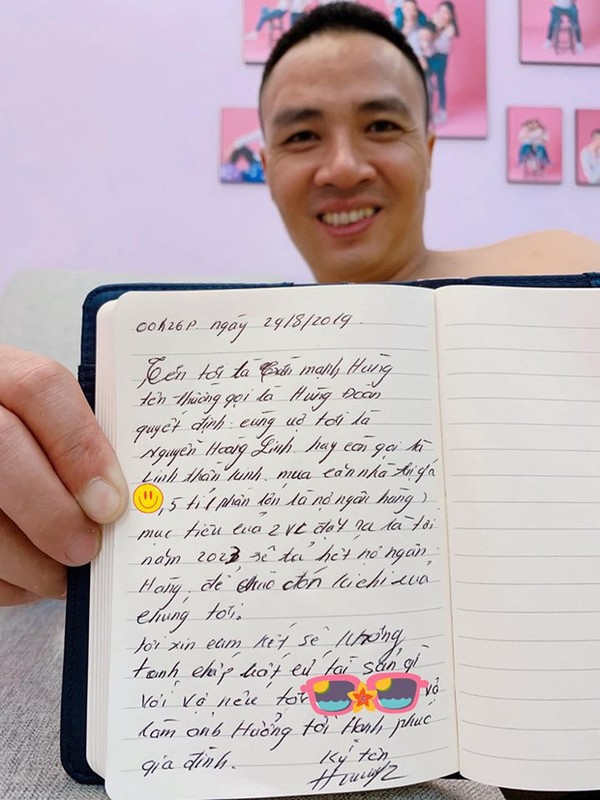 00h26P ngày 29/8/2019.
Tên tôi là Trần mạnh Hùng
tên thường gọi là Hùng Đoan
quyết định cùng vợ tôi là
Nguyễn Hoàng Linh hay còn gọi là
Linh thần kinh. mua căn nhà trị giá
,5 tỉ ( phần lớn là nợ ngân hàng )
mục tiêu của 2 VC đặt ra là tới
năm 2023 sẽ trả hết nợ ngân
Hàng, để chào đón kichi của
chúng tôi.
tôi xin cam kết sẽ không
tranh chấp bất cứ tài sản gì
với vợ nếu tôi
làm ảnh Hưởng tới Hạnh phúc
gia đình.
Ký tên